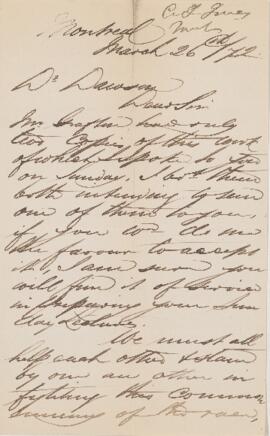 Montreal
March 26th/72
Dr Dawson
Dear Sir
Mr Grafton had only
two Copies of this work
of which I spoke to you
on Sunday. I
both intending to send
one of them to you,
if you wd do me
the favour to accept
it, I am sure you
will find it of service
in preparing your Sun
day Lecture.
We must all
help each other & stand
by one an other in
fighting this common
enemy of the race,